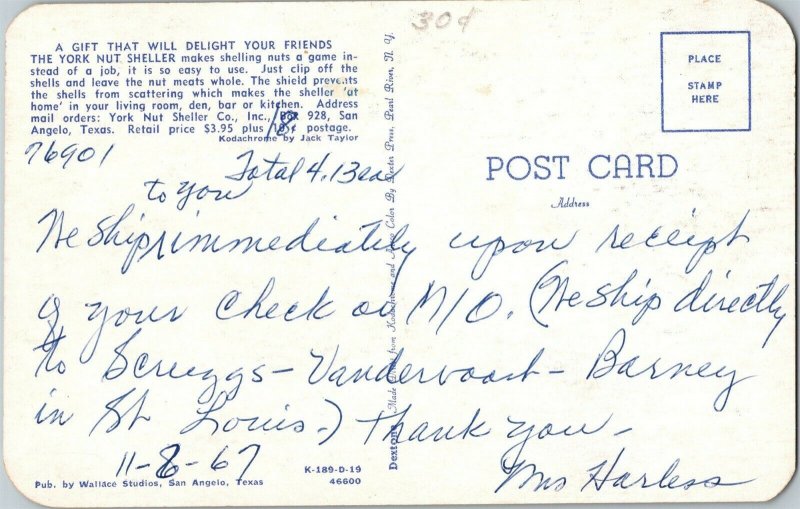 30¢
A GIFT THAT WILL DELIGHT YOUR FRIENDS
THE YORK NUT SHELLER makes shelling nuts a game in-
stead of a job, it is so easy to use. Just clip off the
shells and leave the nut meats whole. The shield prevents
the shells from scattering which makes the sheller 'at
home' in your living room, den, bar or kitchen. Address
mail orders: York Nut Sheller Co., Inc., Box 928, San
Angelo, Texas. Retail price $3.95 plus 18 ¢ postage.
Kodachrome by Jack Taylor
76901
Total 4.13 ea
to you
We ship immediately upon receipt
of your check or M/O. (We ship directly
to Scruggs - Vandervoort - Barney
in St Louis.) Thank you -
11-8-67
Mrs Harless
K-189-D-19
46600
Pub. by Wallace Studios, San Angelo, Texas
Made Direct from Kodachrome and Ansco Color By Dexter Press, Pearl River, N. Y.
PLACE
STAMP
HERE
POST CARD
Address